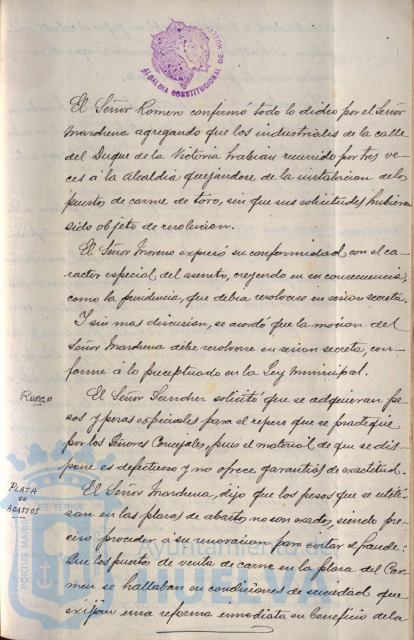 ALCALDIA CONSTITUCIONAL DE HUELVA
El Señor Romero confirmó todo lo dicho por el Señor
Marchena agregando que los industriales de la calle
del Duque de la Victoria habian recurrido por tres ve-
ces á la Alcaldia quejándose de la instalacion de los
puestos de carne de toro, sin que sus solicitudes hubieran
sido objeto de resolucion.
El Señor Moreno expresó su conformidad con el ca-
racter especial del asunto, creyendo en su consecuencia,
como la presidencia, que debia resolverse en sesion secreta.
Y sin mas discusion, se acordó que la mocion del
Señor Marchena debe resolverse en sesion secreta, con-
forme á lo preceptuado en la Ley Municipal.
RUEGO
El Señor Sanchez solicitó que se adquieran pe-
sos y pesas especiales para el repeso que se practique
por los Señores Concejales, pues el material de que se dis-
pone es defectuoso y no ofrece garantias de exactitud.
PLAZA
DE
ABASTOS
El Señor Marchena, dijo que los pesos que se utili-
zan en las plazas de abastos no son exactos, siendo pre-
ciso proceder a su renovacion para evitar el fraude:
Que los puestos de venta de carne en la plaza del Car-
men se hallaban en condiciones de suciedad que
exijian una reforma inmediata en beneficio de la
PORTUS MARIS ET TERRAE
Ayuntamiento de
HUELVA